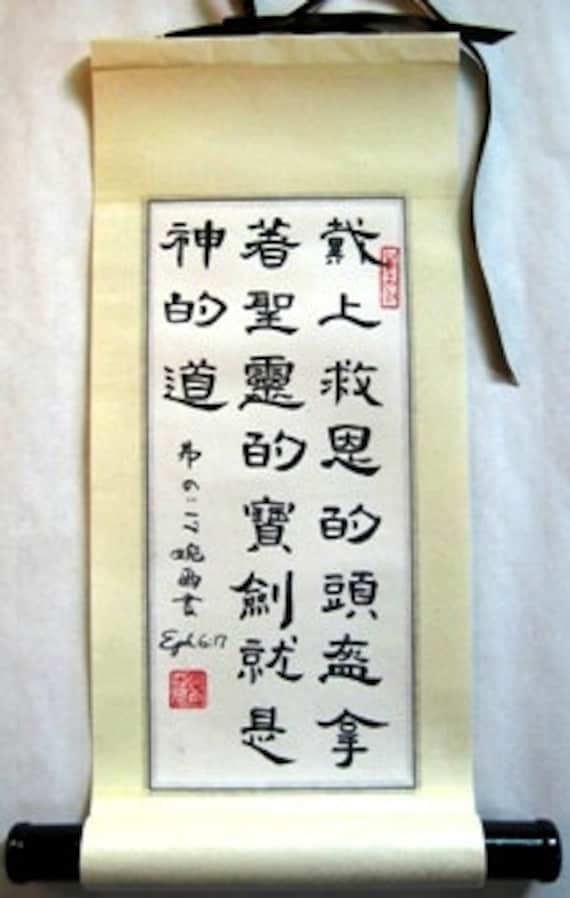 戴上救恩的頭盔拿
著聖靈的寶劍就是
神的道
弗 6:17
Eph 6:17